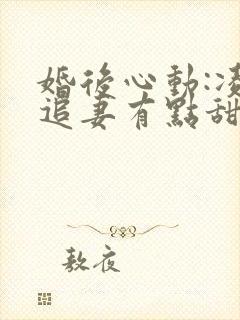 婚後心動:凌
追妻有點甜
敖夜